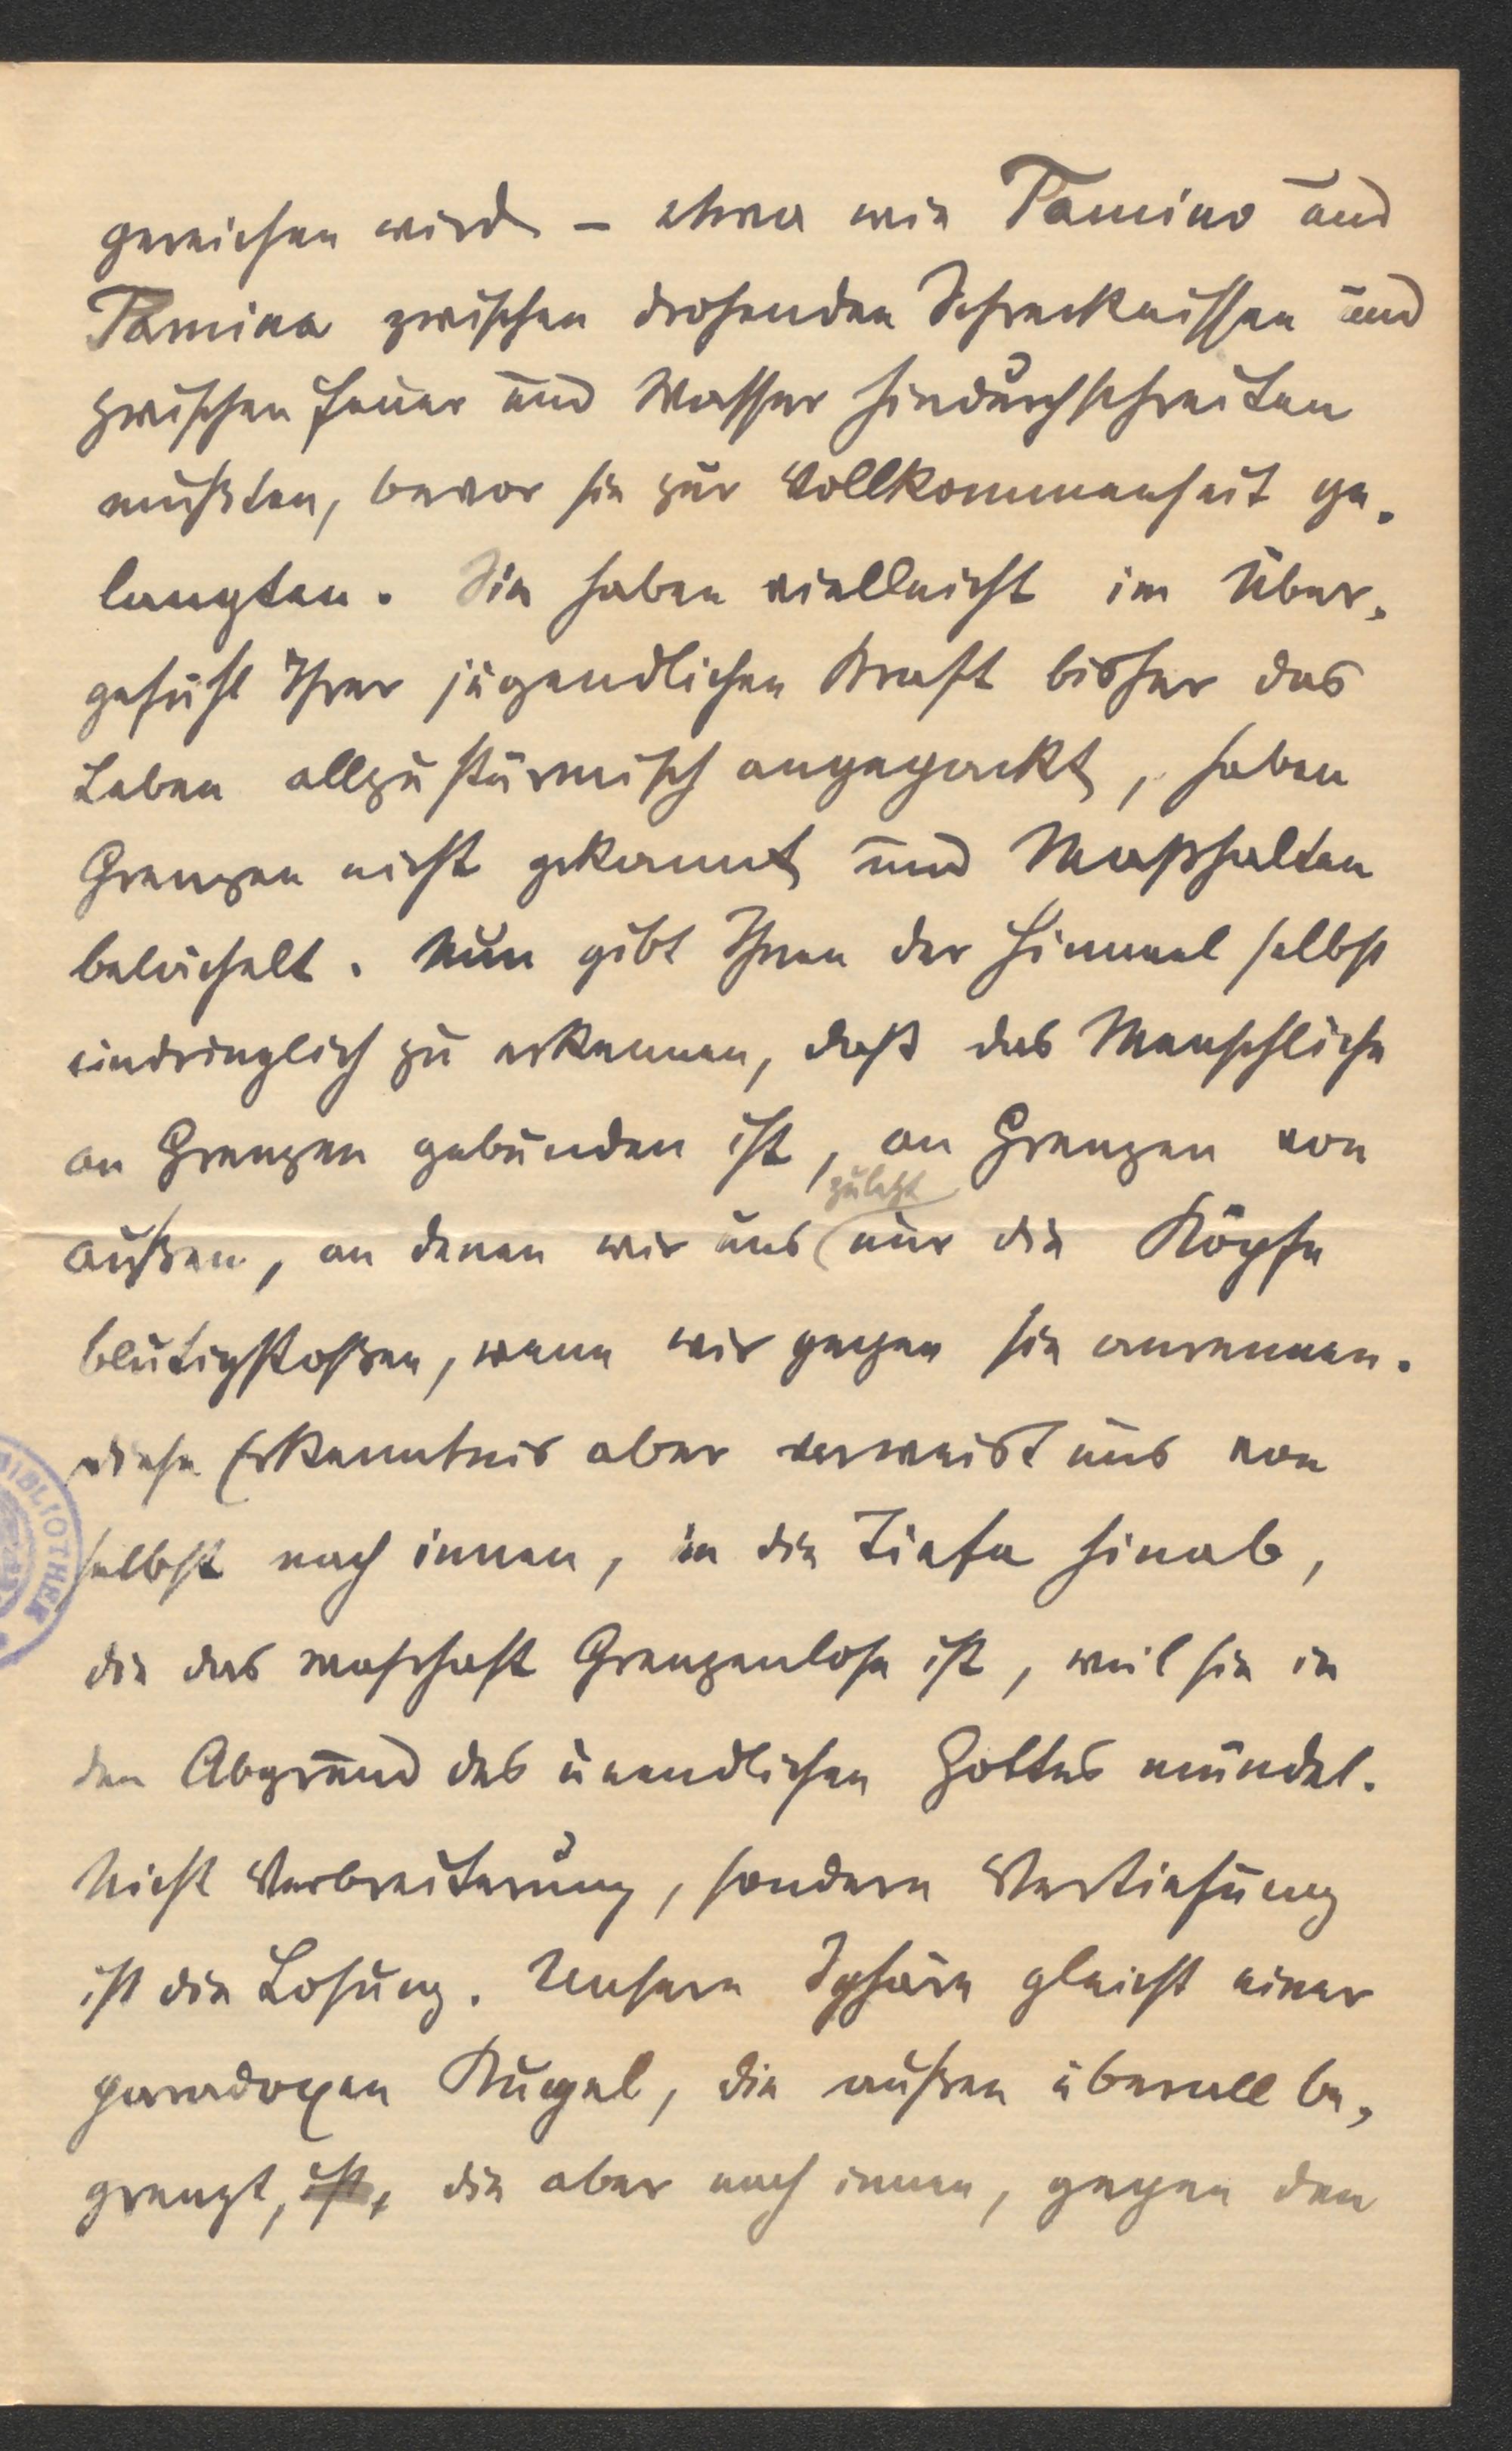 gereichen wird – etwa wie Tamino und
Pamina zwischen drohenden Schrecknissen und
zwischen Feuer und Wasser hindurchschreiten
mußten, bevor sie zur Vollkommenheit ge-
langten. Sie haben vielleicht im Über-
gefühl Ihrer jugendlichen Kraft bisher das
Leben allzu stürmisch angepackt, haben
Grenzen nicht gekannt und Maßhalten
belächelt. Nun gibt Ihnen der Himmel selbst
eindringlich zu erkennen, daß das Menschliche
an Grenzen gebunden ist, an Grenzen von
zuletzt
außen, an denen wir uns nur die Köpfe
blutigstoßen, wenn wir gegen sie anrennen.
diese Erkenntnis aber verweist uns von
selbst nach innen, in die Tiefe hinab,
die das wahrhaft Grenzenlose ist, weil sie in
den Abgrund des unendlichen Gottes mündet.
Nicht Verbreiterung, sondern Vertiefung
ist die Losung. Unsere Sphäre gleicht einer
paradoxen Kugel, die außen überall be-
grenzt, ist, die aber nach innen, gegen den
BIBLIOTHEK